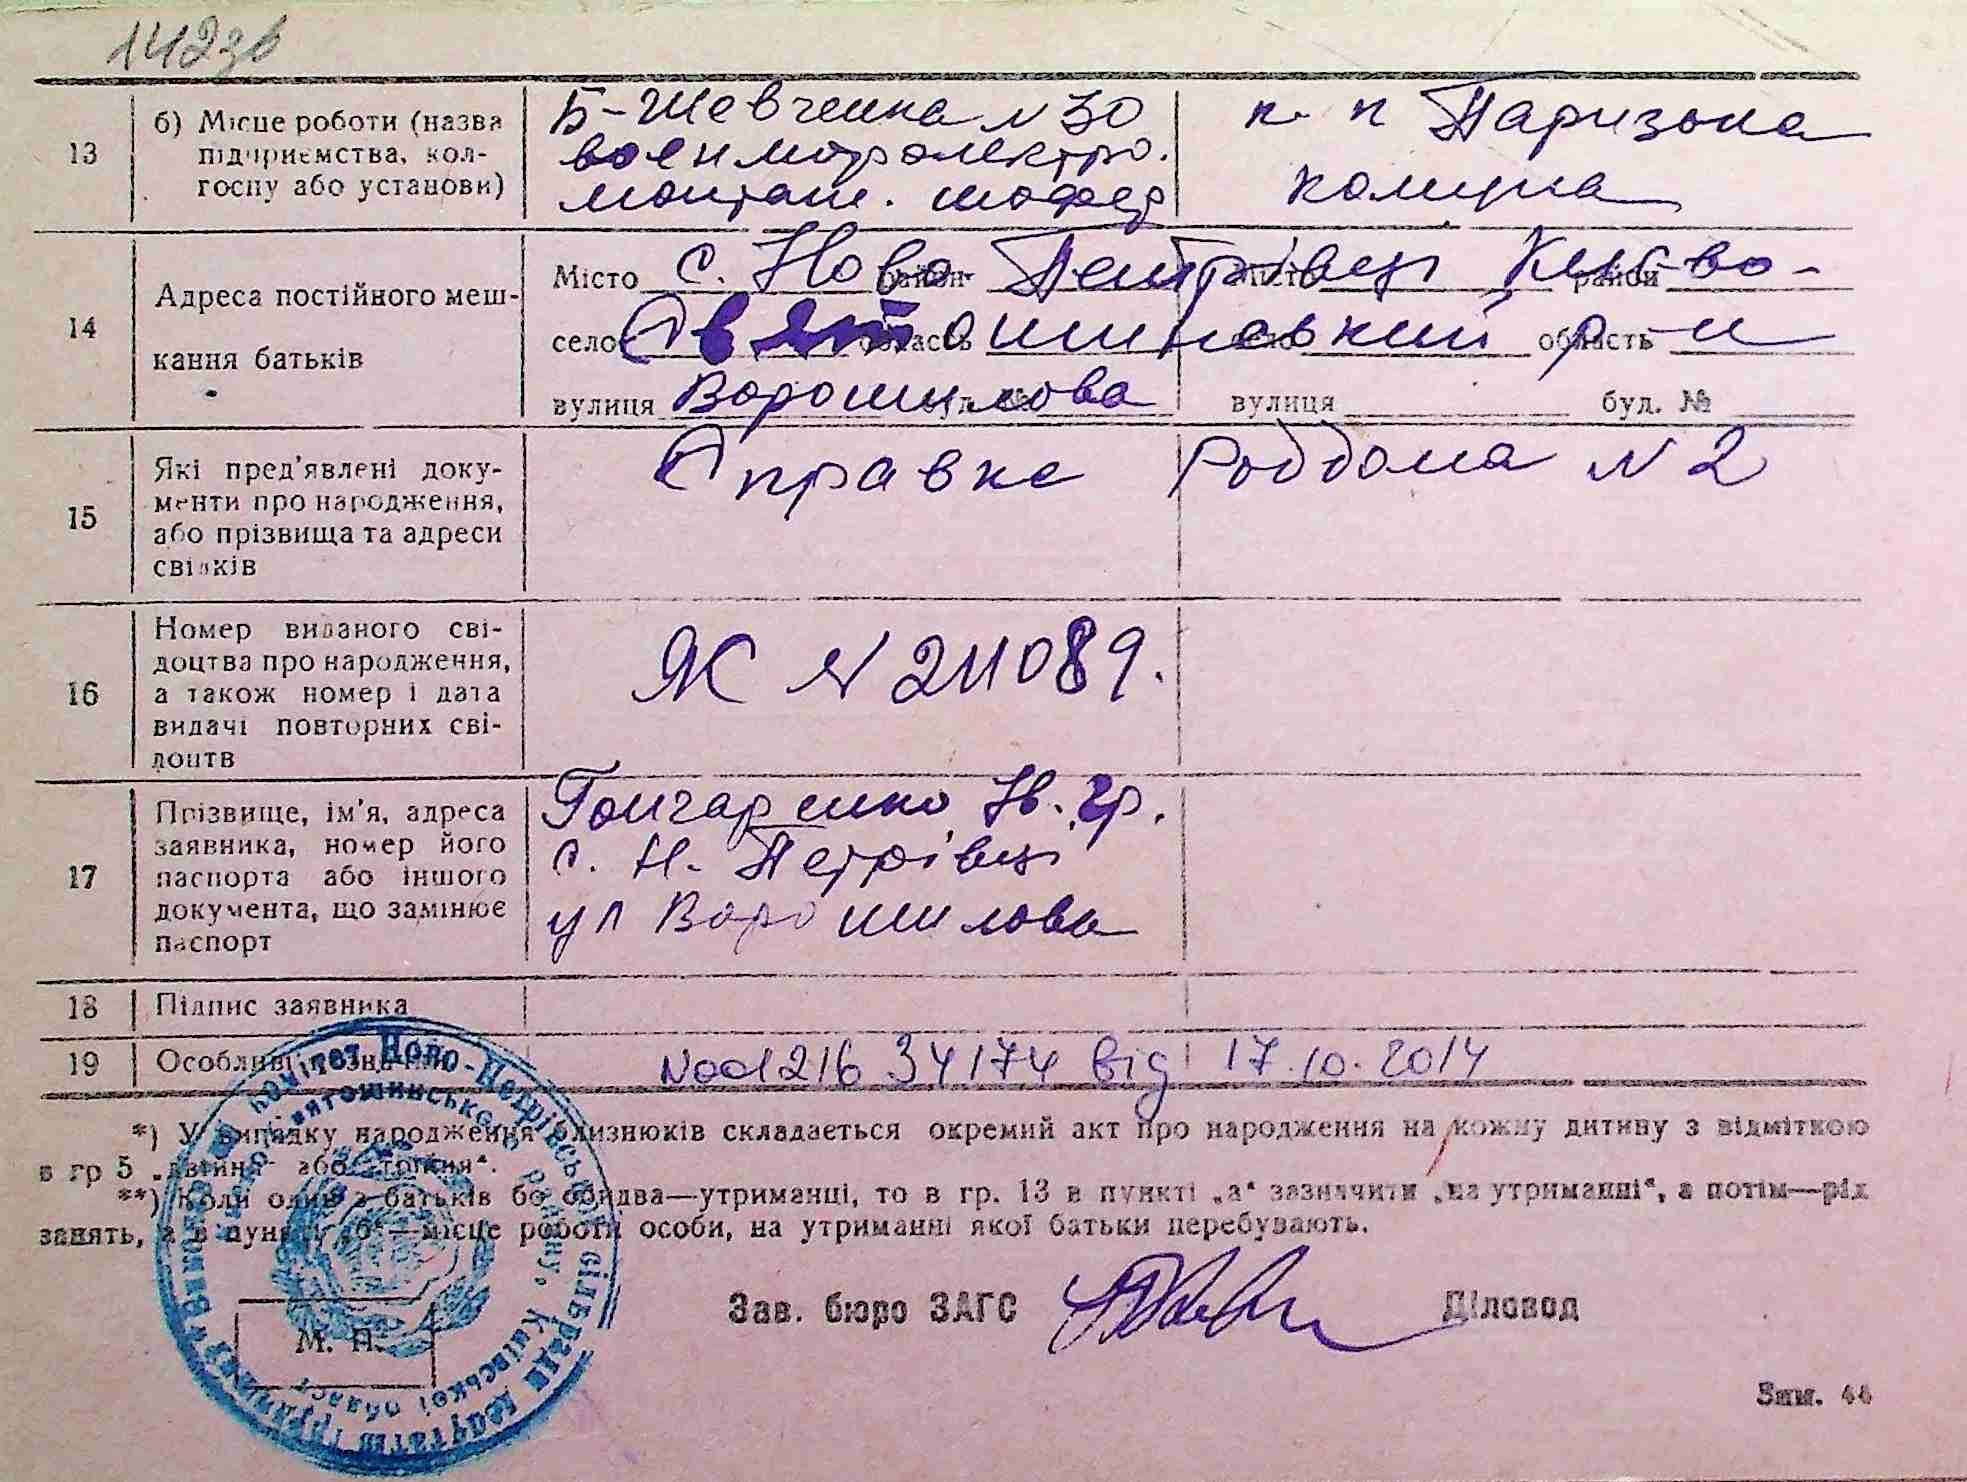 142зв
13
б) Місце роботи (назва
підприємства, кол-
госпу або установи)
Б-Шевченка N 30
монтаж. шофер
к. п Паризька
комуна
14
Адреса постійного меш-
кання батьків
Місто с. Ново-Петрівці Києво-
село Святошинський р-н
область
вулиця Ворошилова
вулиця буд. №
15
Які пред'явлені доку-
менти про народження,
або прізвища та адреси
свідків
Справка Роддома N 2
16
Номер виданого сві-
доцтва про народження,
а також номер і дата
видачі повторних сві-
доцтв
ЯЖ N 211089.
17
Прізвище, ім'я, адреса
заявника, номер його
паспорта або іншого
документа, що замінює
паспорт
Гончаренко Ів. Гр.
с. Н. Петрівці
ул Ворошилова
18
Підпис заявника
19
Особливі
34174 від 17.10.2014
*) У випадку народження близнюків складається окремий акт про народження на кожну дитину з відміткою
в гр 5 „двійня" або „трійня".
**) Коли один з батьків бо обидва—утриманці, то в гр. 13 в пункті „а" зазначити „на утриманні", а потім—рід
занять, а в пункті „б"—місце роботи особи, на утриманні якої батьки перебувають.
Зав. бюро ЗАГС
Діловод
М. П.
комітет Ново-Петрівської сільради депутатів трудящих
Святошинського району, Київської області
Зам. 44